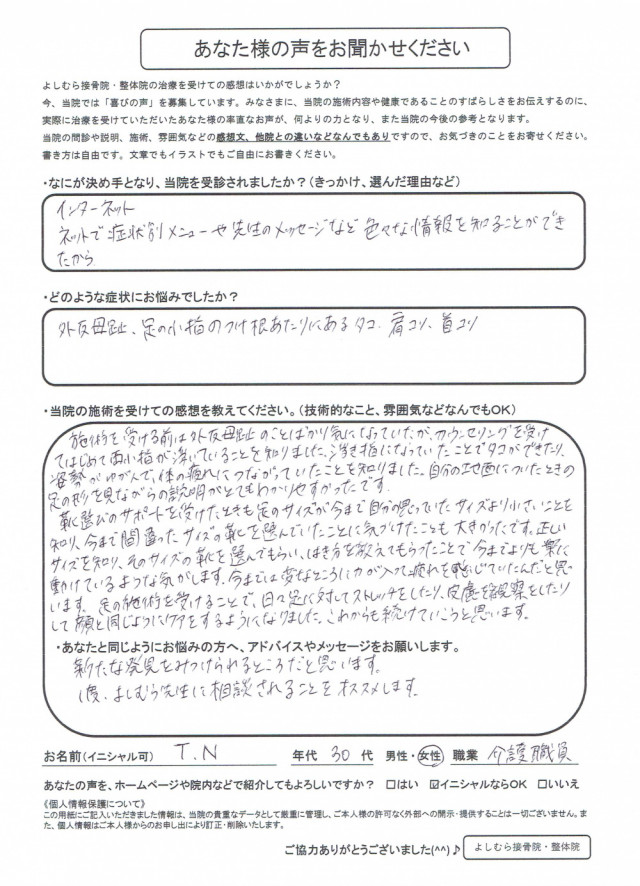 あなた様の声をお聞かせください
よしむら接骨院・整体院の治療を受けての感想はいかがでしょうか？
今、当院では「喜びの声」を募集しています。みなさまに、当院の施術内容や健康であることのすばらしさをお伝えするのに、
実際に治療を受けていただいたあなた様の率直なお声が、何よりの力となり、また当院の今後の参考となります。
当院の問診や説明、施術、雰囲気などの感想文、他院との違いなどなんでもありですので、お気づきのことをお寄せください。
書き方は自由です。文章でもイラストでもご自由にお書きください。
・なにが決め手となり、当院を受診されましたか？（きっかけ、選んだ理由など）
インターネット
ネットで症状別メニューや先生のメッセージなど色々な情報を知ることができ
たから
・どのような症状にお悩みでしたか？
外反母趾、足の小指のつけ根あたりにあるタコ、肩コリ、首コリ
・当院の施術を受けての感想を教えてください。（技術的なこと、雰囲気などなんでもOK）
施術を受ける前は外反母趾のことばかり気になっていたが、カウンセリングを受け
てはじめて両小指が浮いていることを知りました。浮き指になっていたことでタコができたり、
姿勢がゆがんで、体の疲れにつながっていたことを知りました。自分の地面についたときの
足の形を見ながらの説明がとてもわかりやすかったです。
靴選びのサポートを受けたときも足のサイズが今まで自分の思っていたサイズより小さいことを
知り、今まで間違ったサイズの靴を選んでいたことに気づけたことも大きかったです。正しい
サイズを知り、そのサイズの靴を選んでもらい、はき方を教えてもらったことで今までよりも楽に
動けているような気がします。今までは変なところに力が入って疲れを感じていたんだと思
います。足の施術を受けることで、日々足に対してストレッチをしたり、皮膚を観察をしたり
して顔と同じようにケアをするようになりました。これからも続けていこうと思います。
・あなたと同じようにお悩みの方へ、アドバイスやメッセージをお願いします。
新たな発見をみつけられるところだと思います。
1度、よしむら先生に相談されることをオススメします。
お名前（イニシャル可） T.N 年代 30 代 男性・女性 職業 介護職員
あなたの声を、ホームページや院内などで紹介してもよろしいですか？ □はい ☑イニシャルならOK □いいえ
《個人情報保護について》
この用紙にご記入いただきました情報は、当院の貴重なデータとして厳重に管理し、ご本人様の許可なく外部への開示・提供することは一切ございません。ま
た、個人情報はご本人様からのお申し出により訂正・削除いたします。
ご協力ありがとうございました(^^)♪ よしむら接骨院・整体院